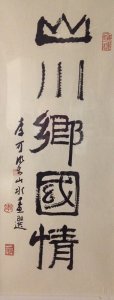 山川鄉國情
李可染山水畫選